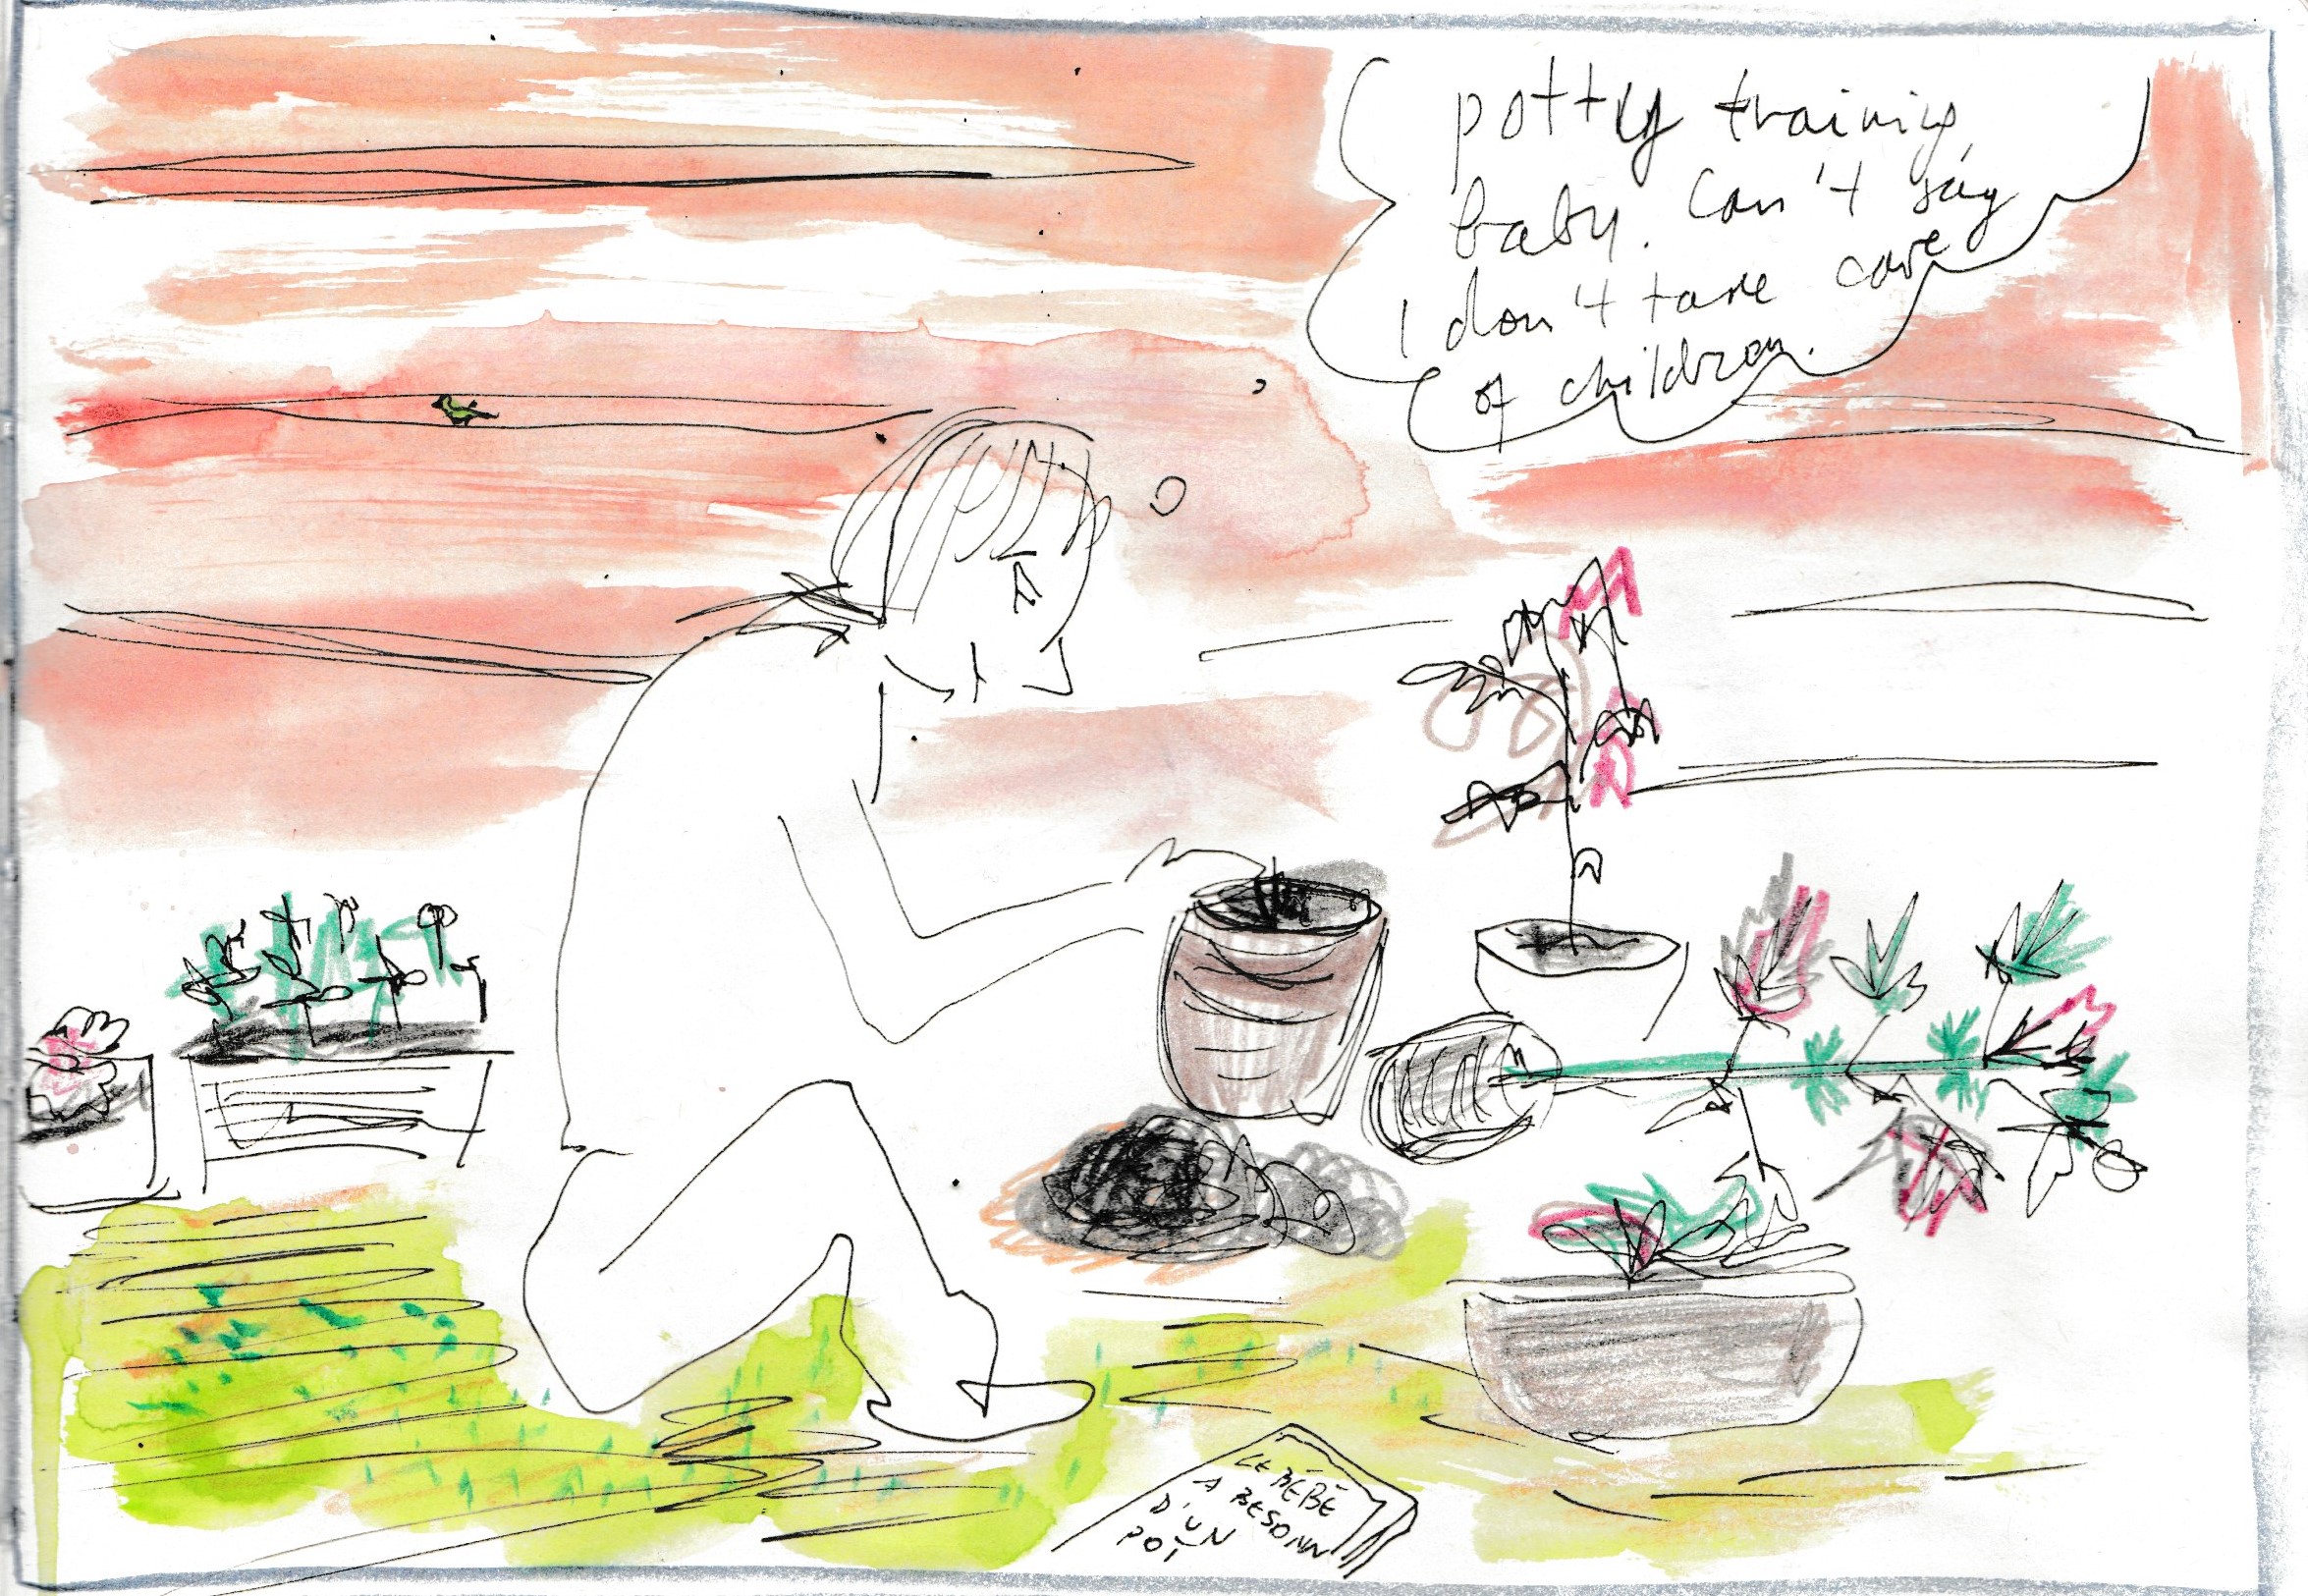 potty training
baby. Can't say
I don't take care
of children.
LE BÉBÉ
A BESOIN
D'UN
POT